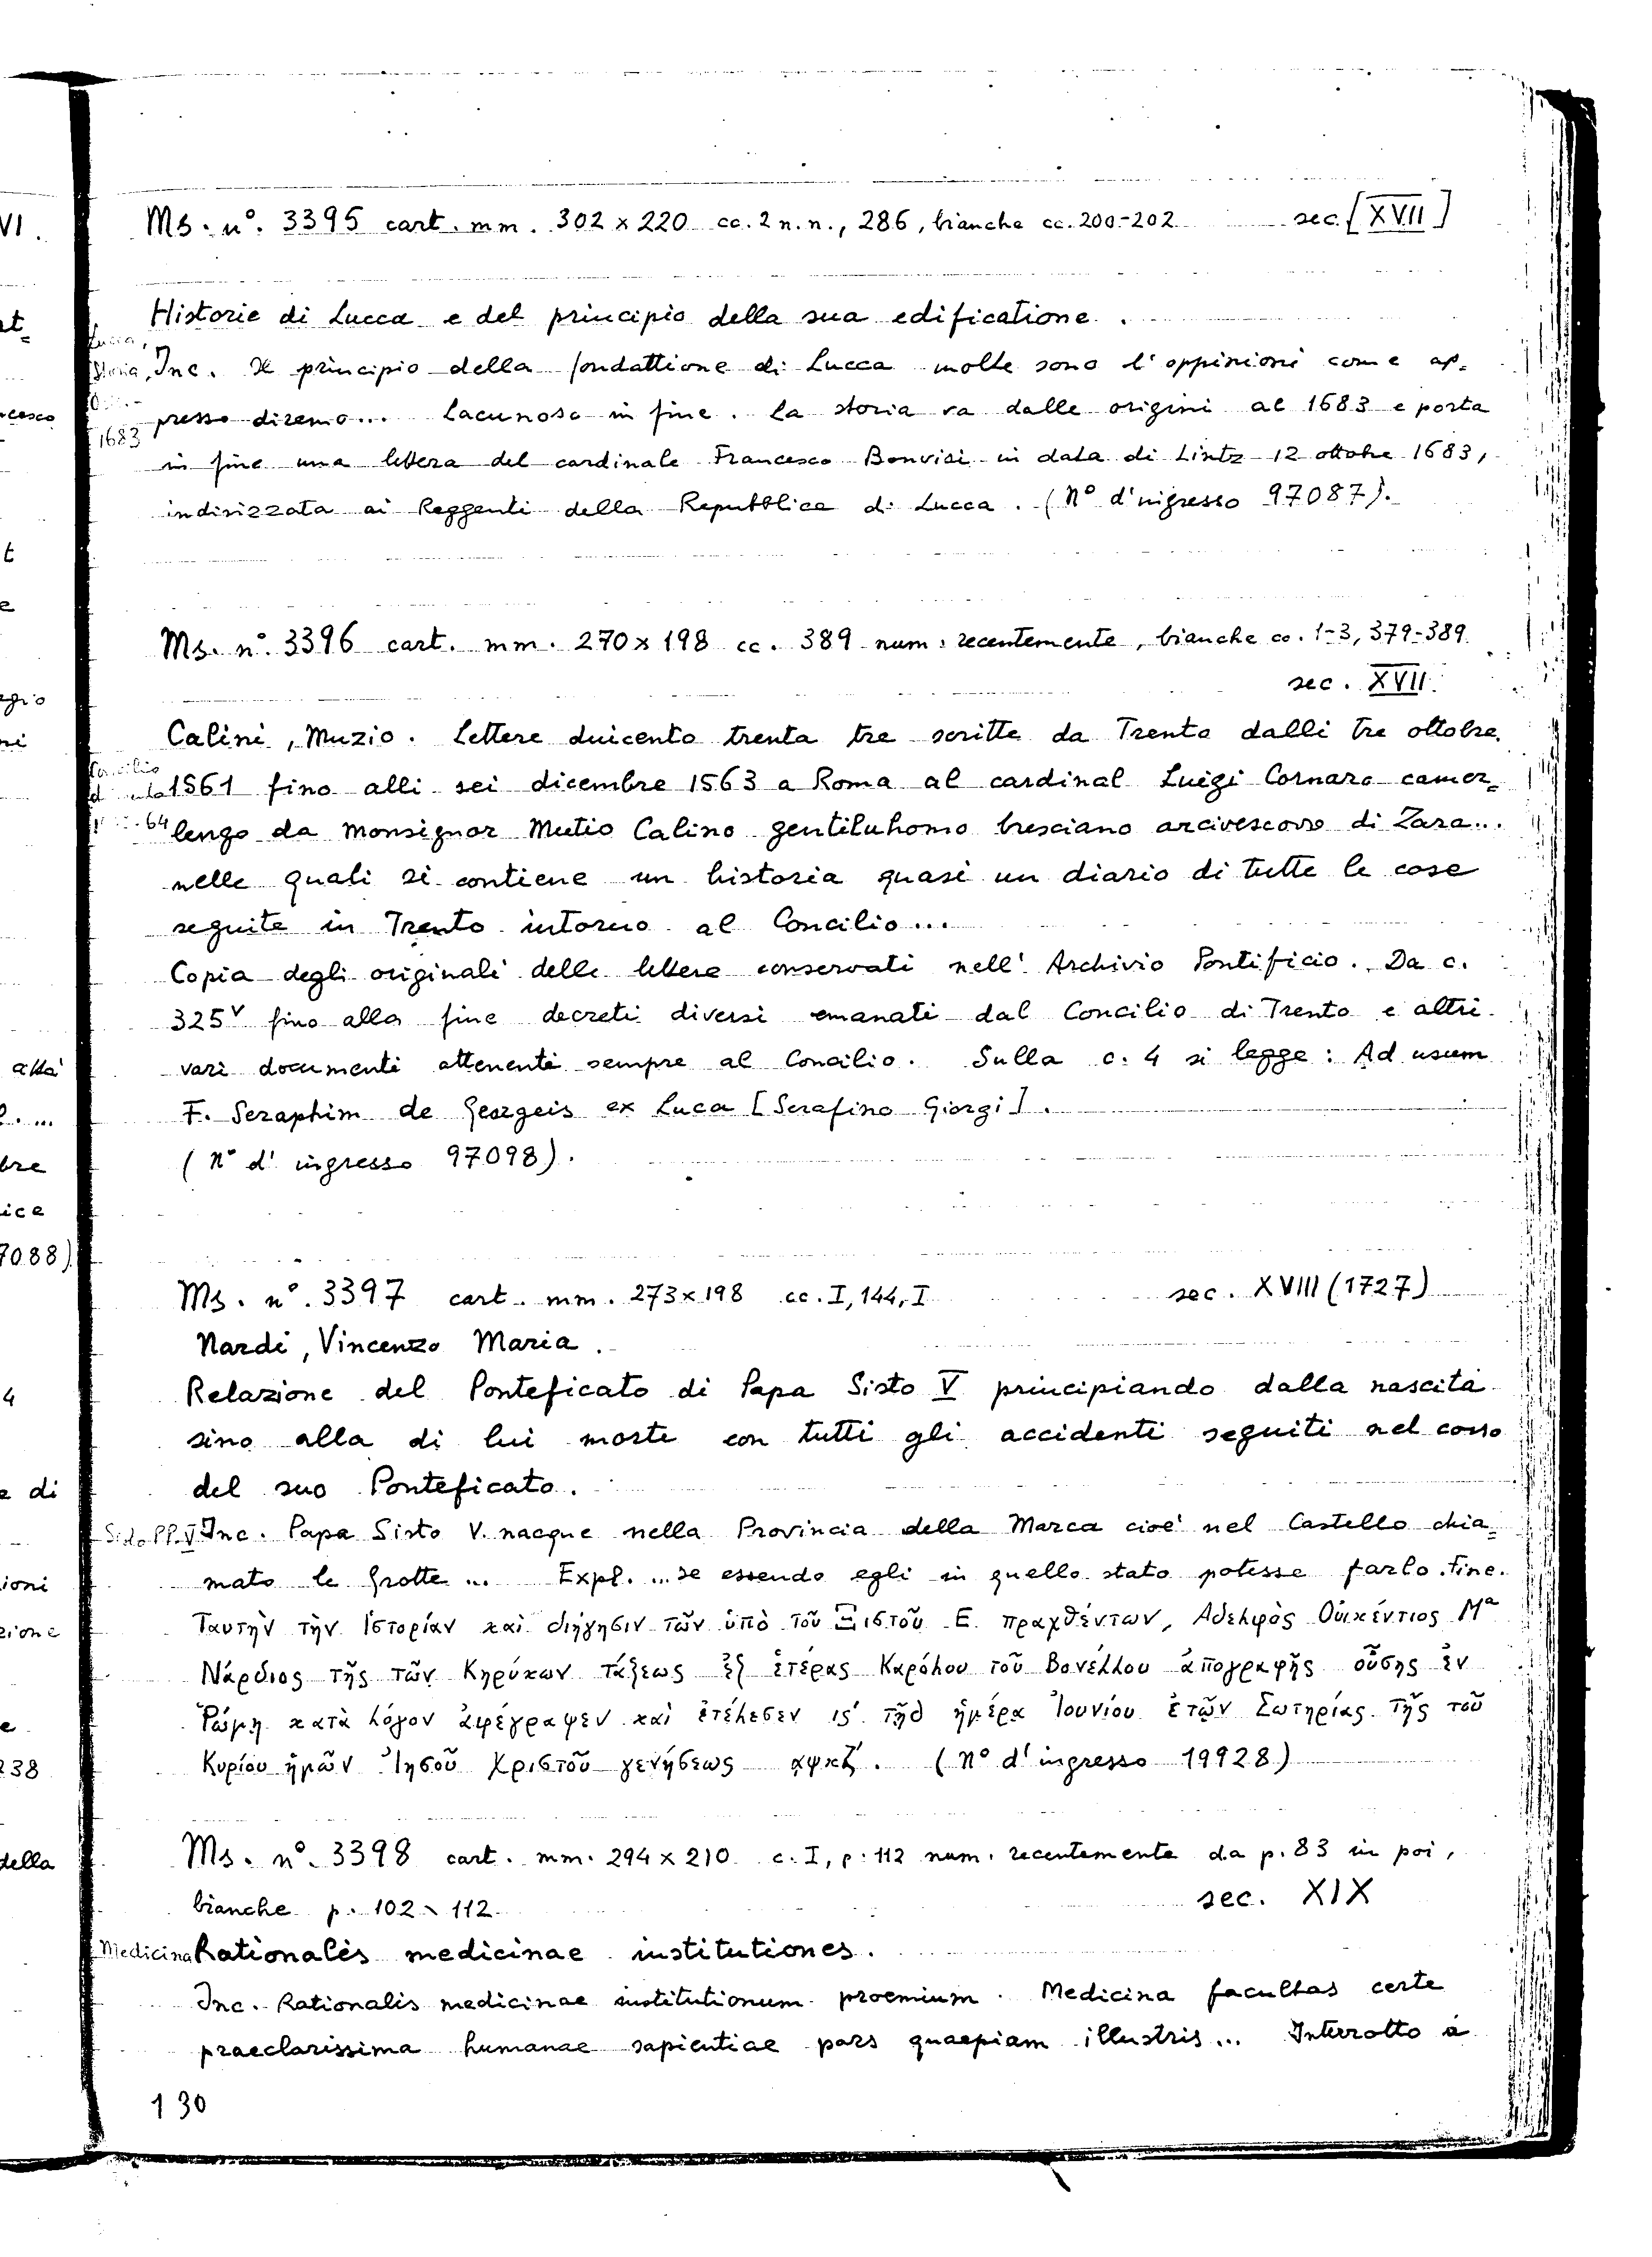 Ms. n°. 3395 cart. mm. 302 x 220 cc. 2 n. n., 286, bianche cc. 200-202 sec. [XVII]
Historie di Lucca e del principio della sua edificatione.
Inc. Il principio della fondattione di Lucca molte sono l'oppinioni come ap=
presso diremo... Lacunoso in fine. La storia va dalle origini al 1683 e porta
1683
in fine una lettera del cardinale Francesco Bonvisi in data di Lintz 12 ottobre 1683,
indirizzata ai Reggenti della Repubblica di Lucca. (N° d'ingresso 97087).
Ms. n°. 3396 cart. mm. 270 x 198 cc. 389 num. recentemente, bianche cc. 1-3, 379-389
sec. XVII.
Calini, Muzio. Lettere duicento trenta tre scritte da Trento dalli tre ottobre
Concilio
1561 fino alli sei dicembre 1563 a Roma al cardinal Luigi Cornaro camer=
lengo da monsignor Mutio Calino gentiluhomo bresciano arcivescovo di Zara...
nelle quali si contiene un historia quasi un diario di tutte le cose
seguite in Trento intorno al Concilio...
Copia degli originali delle lettere conservati nell'Archivio Pontificio. Da c.
325v fino alla fine decreti diversi emanati dal Concilio di Trento e altri
vari documenti attenenti sempre al Concilio. Sulla c. 4 si legge: Ad usum
F. Seraphim de Georgeis ex Luca [Serafino Giorgi].
(N° d'ingresso 97098).
Ms. n°. 3397 cart. mm. 273 x 198 cc. I, 144, I sec. XVIII (1727)
Nardi, Vincenzo Maria.
Relazione del Ponteficato di Papa Sisto V principiando dalla nascita
sino alla di lui morte con tutti gli accidenti seguiti nel corso
del suo Ponteficato.
Sisto PP. V Inc. Papa Sisto V. nacque nella Provincia della Marca cioè nel Castello chia=
mato le Grotte... Expl. ...se essendo egli in quello stato potesse farlo. Fine.
Ταυτὴν τὴν ἱστορίαν καὶ διήγησιν τῶν ὑπὸ τοῦ Ξιστοῦ Ε. πραχθέντων, Αδελφὸς Οὐικέντιος Μα
Νάρδιος τῆς τῶν Κηρύκων τάξεως ἐξ ἑτέρας Καρόλου τοῦ Βονέλλου ἀπογραφῆς οὔσης ἐν
Ῥώμῃ κατὰ λόγον ἀφέγραψεν καὶ ἐτέλεσεν ις' τῇδ ἡμέρα Ἰουνίου ἐτῶν Σωτηρίας τῆς τοῦ
Κυρίου ἡμῶν Ἰησοῦ Χριστοῦ γενήσεως αψκζ'. (N° d'ingresso 19928)
Ms. n°. 3398 cart. mm. 294 x 210 c. I, p. 112 num. recentemente da p. 83 in poi,
bianche p. 102-112 sec. XIX
Medicina Rationalis medicinae institutiones.
Inc. Rationalis medicinae institutionum proemium. Medicina facultas certe
praeclarissima humanae sapientiae pars quaepiam illustris... Interrotto a
130